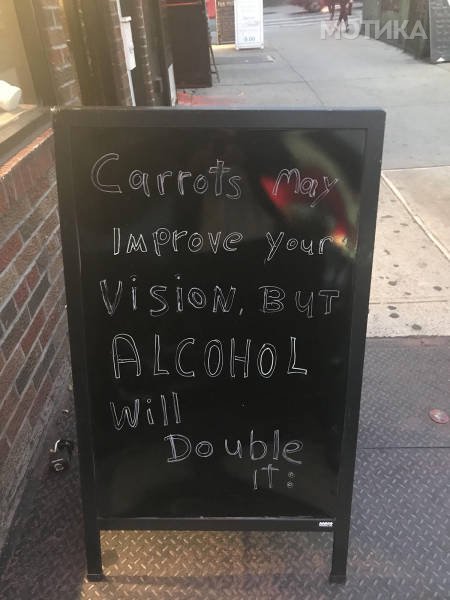 МОТИКА
Carrots May
Improve Your
Vision, But
ALCOHOL
Will
Double
It: